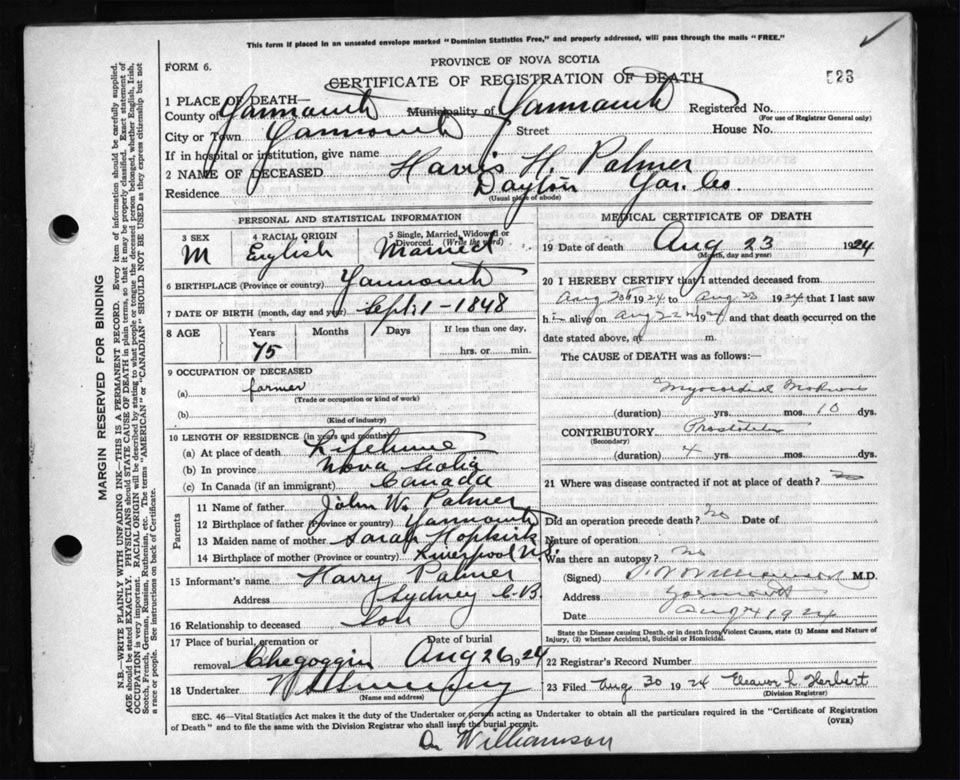 This form if placed in an unsealed envelope marked "Dominion Statistics Free," and properly addressed, will pass through the mails "FREE."
FORM 6.
PROVINCE OF NOVA SCOTIA
CERTIFICATE OF REGISTRATION OF DEATH
523
1 PLACE OF DEATH—
County of Yarmouth Municipality of Yarmouth Registered No.
(For use of Registrar General only)
City or Town Yarmouth Street House No.
If in hospital or institution, give name
2 NAME OF DECEASED Harris H. Palmer
Residence Dayton Yar. Co.
(Usual place of abode)
PERSONAL AND STATISTICAL INFORMATION
3 SEX M
4 RACIAL ORIGIN English
5 Single, Married, Widowed or Divorced. (Write the word) Married
6 BIRTHPLACE (Province or country) Yarmouth
7 DATE OF BIRTH (month, day and year) Sept 1 - 1848
8 AGE Years Months Days If less than one day,
75 hrs. or min.
9 OCCUPATION OF DECEASED
(a) farmer
(Trade or occupation or kind of work)
(b)
(Kind of industry)
10 LENGTH OF RESIDENCE (in years and months)
(a) At place of death Lifetime
(b) In province Nova Scotia
(c) In Canada (if an immigrant) Canada
Parents
11 Name of father John W. Palmer
12 Birthplace of father (Province or country) Yarmouth
13 Maiden name of mother Sarah Hopkirk
14 Birthplace of mother (Province or country) Liverpool N.S.
15 Informant's name Harry Palmer
Address Sydney C.B.
16 Relationship to deceased Son
17 Place of burial, cremation or removal Chegoggin Date of burial Aug 26 1924
18 Undertaker
(Name and address)
MEDICAL CERTIFICATE OF DEATH
19 Date of death Aug 23 1924
(Month, day and year)
20 I HEREBY CERTIFY that I attended deceased from
Aug 1924 to Aug 23 1924 that I last saw
h alive on Aug 22 1924 and that death occurred on the
date stated above, at m.
The CAUSE of DEATH was as follows:
Myocardial
(duration) yrs. mos. 10 dys.
CONTRIBUTORY
(Secondary)
(duration) 4 yrs. mos. dys.
21 Where was disease contracted if not at place of death?
Did an operation precede death? no Date of
Nature of operation
Was there an autopsy? no
(Signed) Williamson M.D.
Address Yarmouth
Date Aug 1924
State the Disease causing Death, or in death from Violent Causes, state (1) Means and Nature of
Injury, (2) whether Accidental, Suicidal or Homicidal.
22 Registrar's Record Number
23 Filed Aug 30 1924 Eleanor L. Herbert
(Division Registrar)
SEC. 46—Vital Statistics Act makes it the duty of the Undertaker or person acting as Undertaker to obtain all the particulars required in the "Certificate of Registration
of Death" and to file the same with the Division Registrar who shall issue the burial permit.
(OVER)
Dr Williamson
MARGIN RESERVED FOR BINDING
N.B.—WRITE PLAINLY WITH UNFADING INK—THIS IS A PERMANENT RECORD. Every item of information should be carefully supplied.
AGE should be stated EXACTLY. PHYSICIANS should STATE CAUSE OF DEATH in plain terms, so that it may be properly classified. Exact statement of
OCCUPATION is very important. RACIAL ORIGIN will be described by stating to what people or tongue the deceased person belonged, whether English, Irish,
Scotch, French, German, Russian, Ruthenian, etc. The terms "AMERICAN" or "CANADIAN" SHOULD NOT BE USED as they express citizenship but not
a race or people. See instructions on back of Certificate.